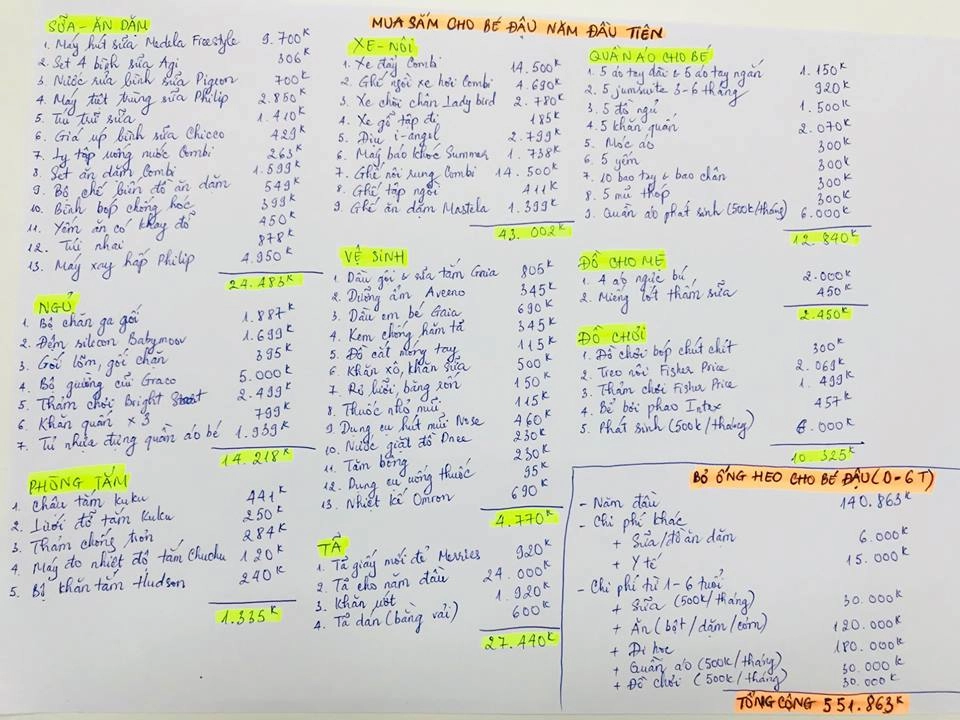 MUA SẮM CHO BÉ ĐẬU NĂM ĐẦU TIÊN
SỮA - ĂN DẶM
1. Máy hút sữa Medela Freestyle 9.700K
2. Set 4 bình sữa Agi 306K
3. Nước rửa bình sữa Pigeon 700K
4. Máy tiệt trùng sữa Philip 2.850K
5. Túi trữ sữa 1.410K
6. Giá úp bình sữa Chicco 429K
7. Ly tập uống nước Combi 263K
8. Set ăn dặm Combi 1.599K
9. Bộ chế biến đồ ăn dặm 549K
10. Bình bóp chống hóc 399K
11. Yếm ăn có khay đổ 450K
12. Túi nhai 878K
13. Máy xay hấp Philip 4.950K
24.483K
NGỦ
1. Bộ chăn ga gối 1.887K
2. Đệm silicon Babymoov 1.699K
3. Gối lõm, gối chặn 395K
4. Bộ giường cũi Graco 5.000K
5. Thảm chơi Bright Start 2.499K
6. Khăn quấn x 3 799K
7. Tủ nhựa đựng quần áo bé 1.939K
14.218K
PHÒNG TẮM
1. Chậu tắm Kuku 441K
2. Lưới đỡ tắm Kuku 250K
3. Thảm chống trơn 284K
4. Máy đo nhiệt độ tắm Chuchu 120K
5. Bộ khăn tắm Hudson 240K
1.335K
XE - NÔI
1. Xe đẩy Combi 14.500K
2. Ghế ngồi xe hơi Combi 4.690K
3. Xe chòi chân Lady bird 2.780K
4. Xe gỗ tập đi 185K
5. Địu i-angel 2.799K
6. Máy báo khóc Summer 1.738K
7. Ghế nôi rung Combi 14.500K
8. Ghế tập ngồi 411K
9. Ghế ăn dặm Mastela 1.399K
43.002K
VỆ SINH
1. Dầu gội & sữa tắm Gaia 805K
2. Dưỡng ẩm Aveeno 345K
3. Dầu em bé Gaia 690K
4. Kem chống hăm tã 345K
5. Đồ cắt móng tay 115K
6. Khăn xô, khăn sữa 500K
7. Rơ lưỡi, băng rốn 150K
8. Thuốc nhỏ mũi 115K
9. Dụng cụ hút mũi Nose 460K
10. Nước giặt đồ Dnee 230K
11. Tăm bông 230K
12. Dụng cụ uống thuốc 95K
13. Nhiệt kế Omron 690K
4.770K
TÃ
1. Tã giấy mới đẻ Merries 920K
2. Tã cho năm đầu 24.000K
3. Khăn ướt 1.920K
4. Tã dán (bằng vải) 600K
27.440K
QUẦN ÁO CHO BÉ
1. 5 áo tay dài & 5 áo tay ngắn 1.150K
2. 5 jumsuite 3-6 tháng 920K
3. 5 đồ ngủ 1.500K
4. 5 khăn quấn 2.070K
5. Móc áo 300K
6. 5 yếm 300K
7. 10 bao tay & bao chân 300K
8. 5 mũ thóp 300K
9. Quần áo phát sinh (500K/tháng) 6.000K
12.840K
ĐỒ CHO MẸ
1. 4 áo ngực bú 2.000K
2. Miếng lót thấm sữa 450K
2.450K
ĐỒ CHƠI
1. Đồ chơi bóp chút chít 300K
2. Treo nôi Fisher Price 2.069K
3. Thảm chơi Fisher Price 1.499K
4. Bể bơi phao Intex 457K
5. Phát sinh (500K/tháng) 6.000K
10.325K
BỎ ỐNG HEO CHO BÉ ĐẬU (0-6T)
- Năm đầu 140.863K
- Chi phí khác
+ Sữa/đồ ăn dặm 6.000K
+ Y tế 15.000K
- Chi phí từ 1-6 tuổi
+ Sữa (500K/tháng) 30.000K
+ Ăn (bột/dặm/cơm) 120.000K
+ Đi học 180.000K
+ Quần áo (500K/tháng) 30.000K
+ Đồ chơi (500K/tháng) 30.000K
TỔNG CỘNG 551.863K